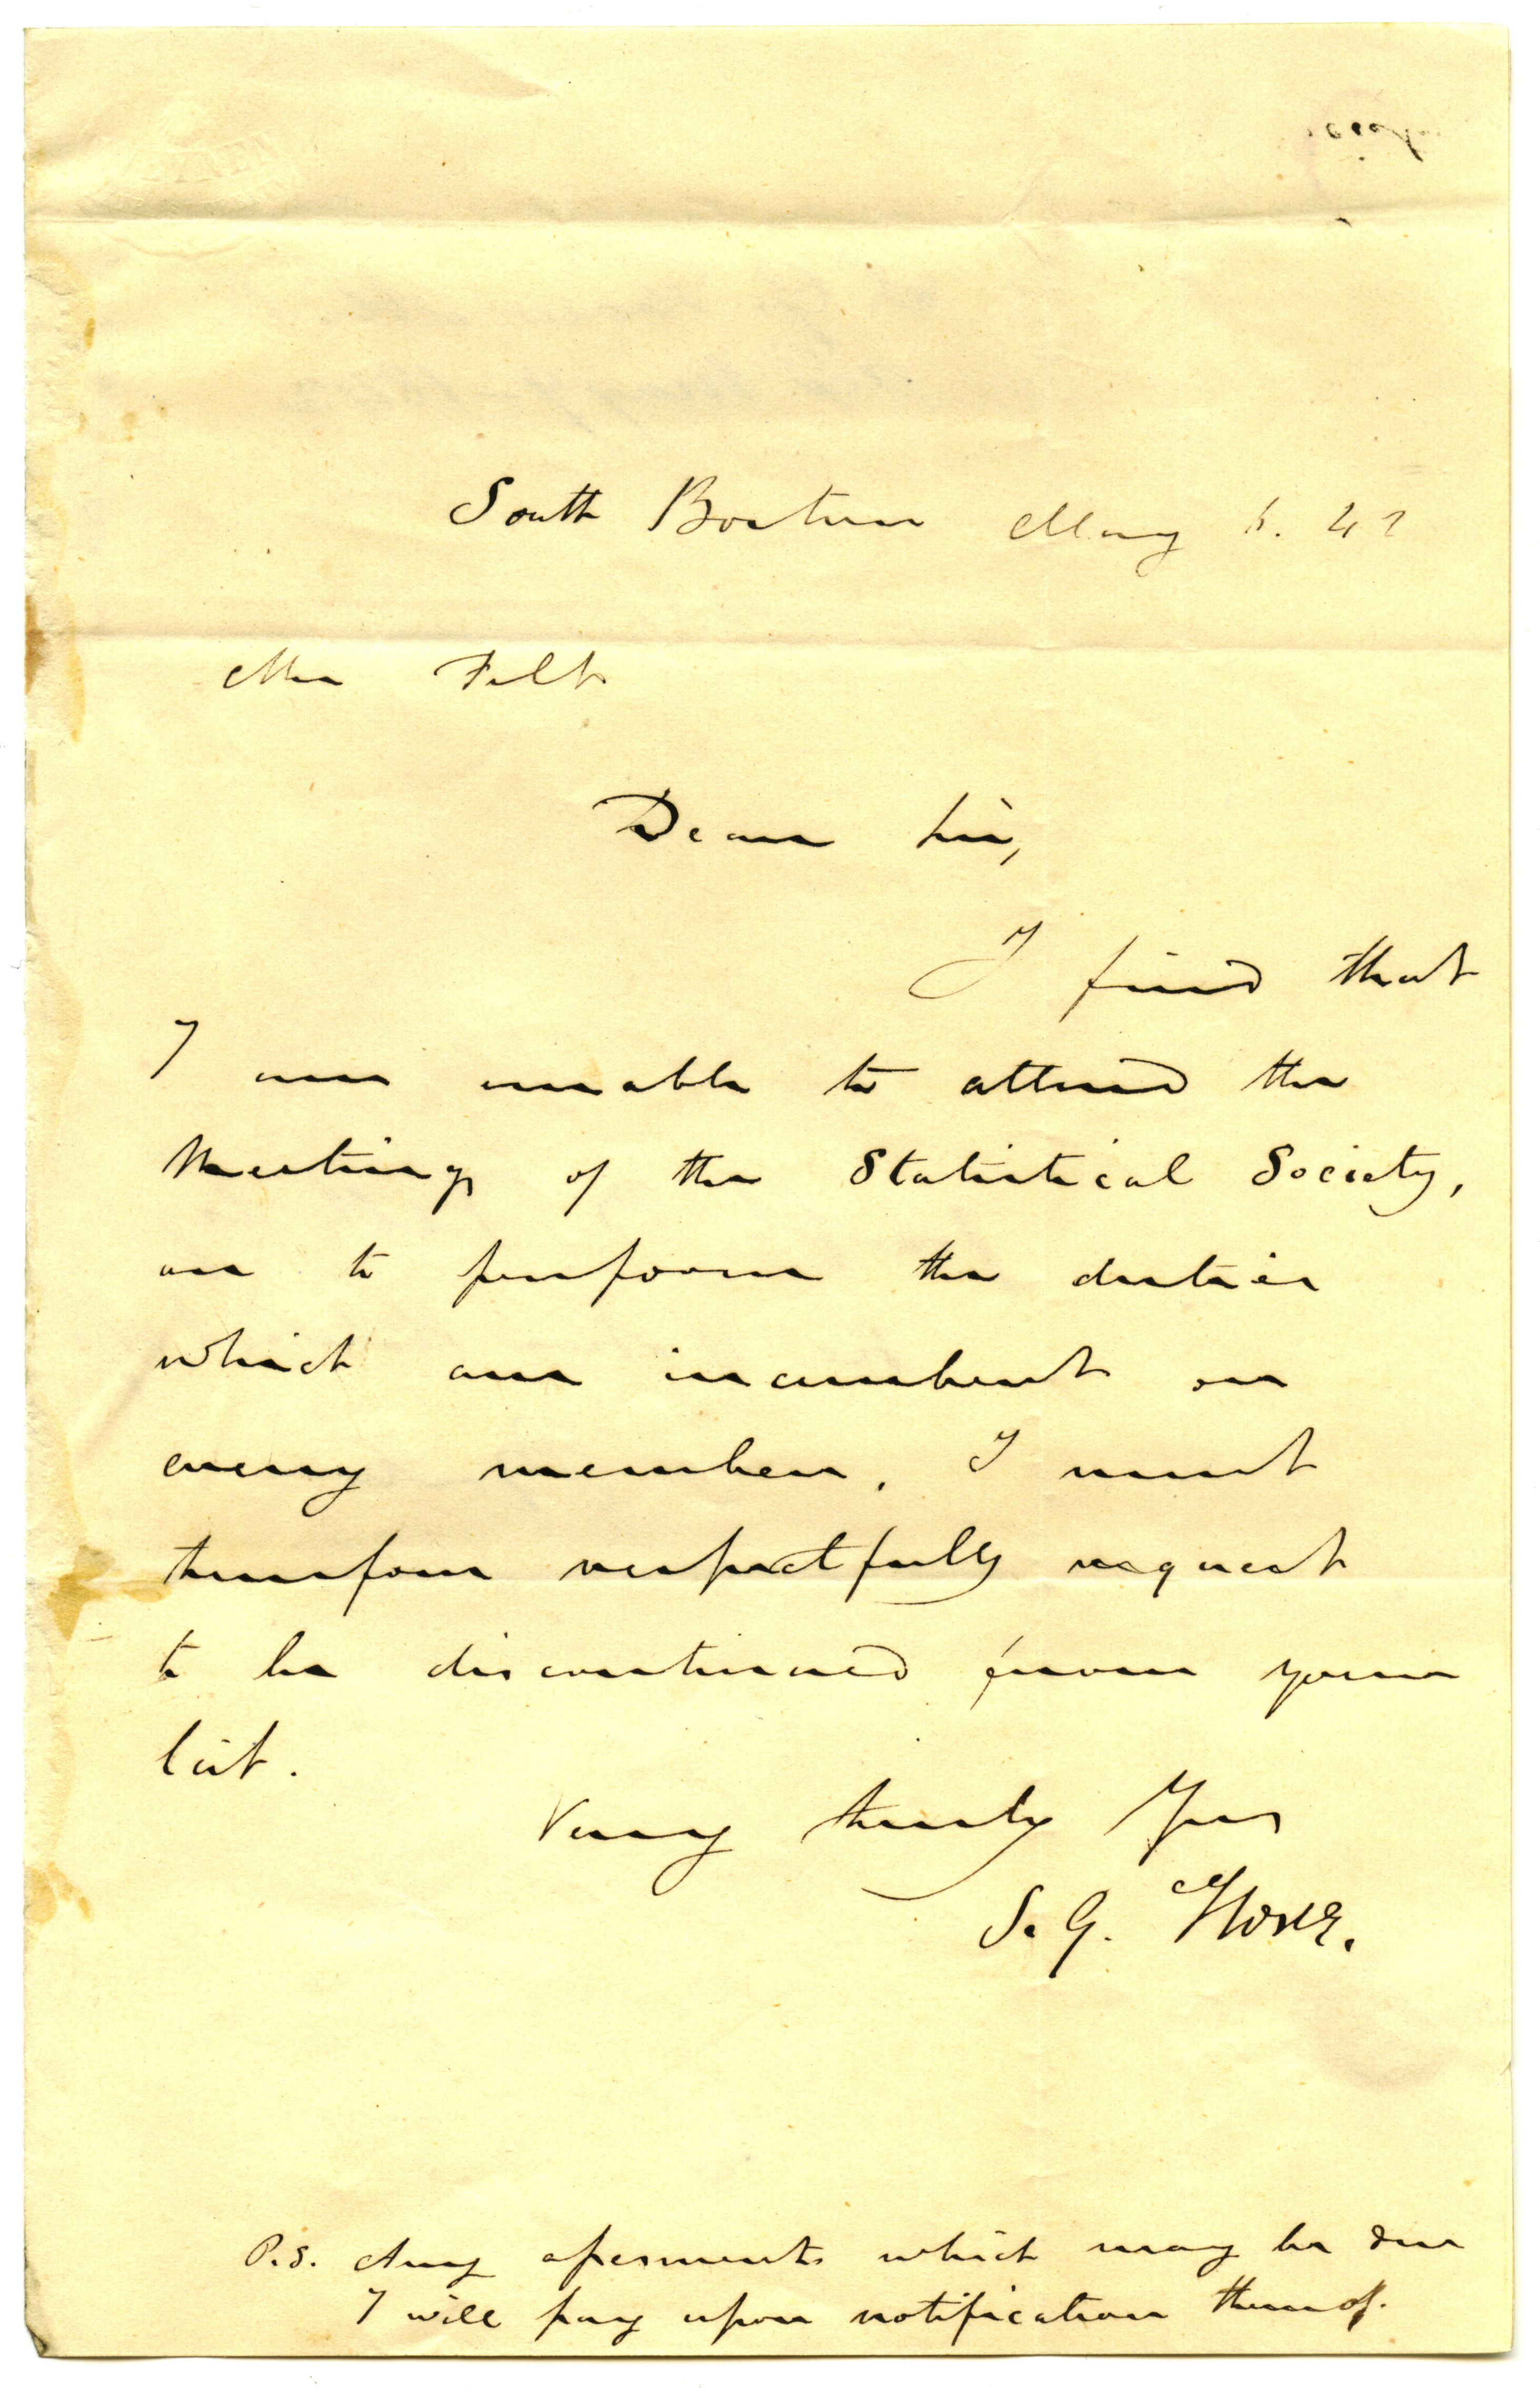 South Boston May 42
Mr Felt
Dear Sir,
I find that
I am unable to attend the
Meetings of the Statistical Society,
or to perform the duties
which are incumbent on
every member. I must
therefore respectfully request
to be discontinued from your
list.
Very truly Yrs
S. G. Howe.
P.S. Any assessments which may be due
I will pay upon notification thereof.